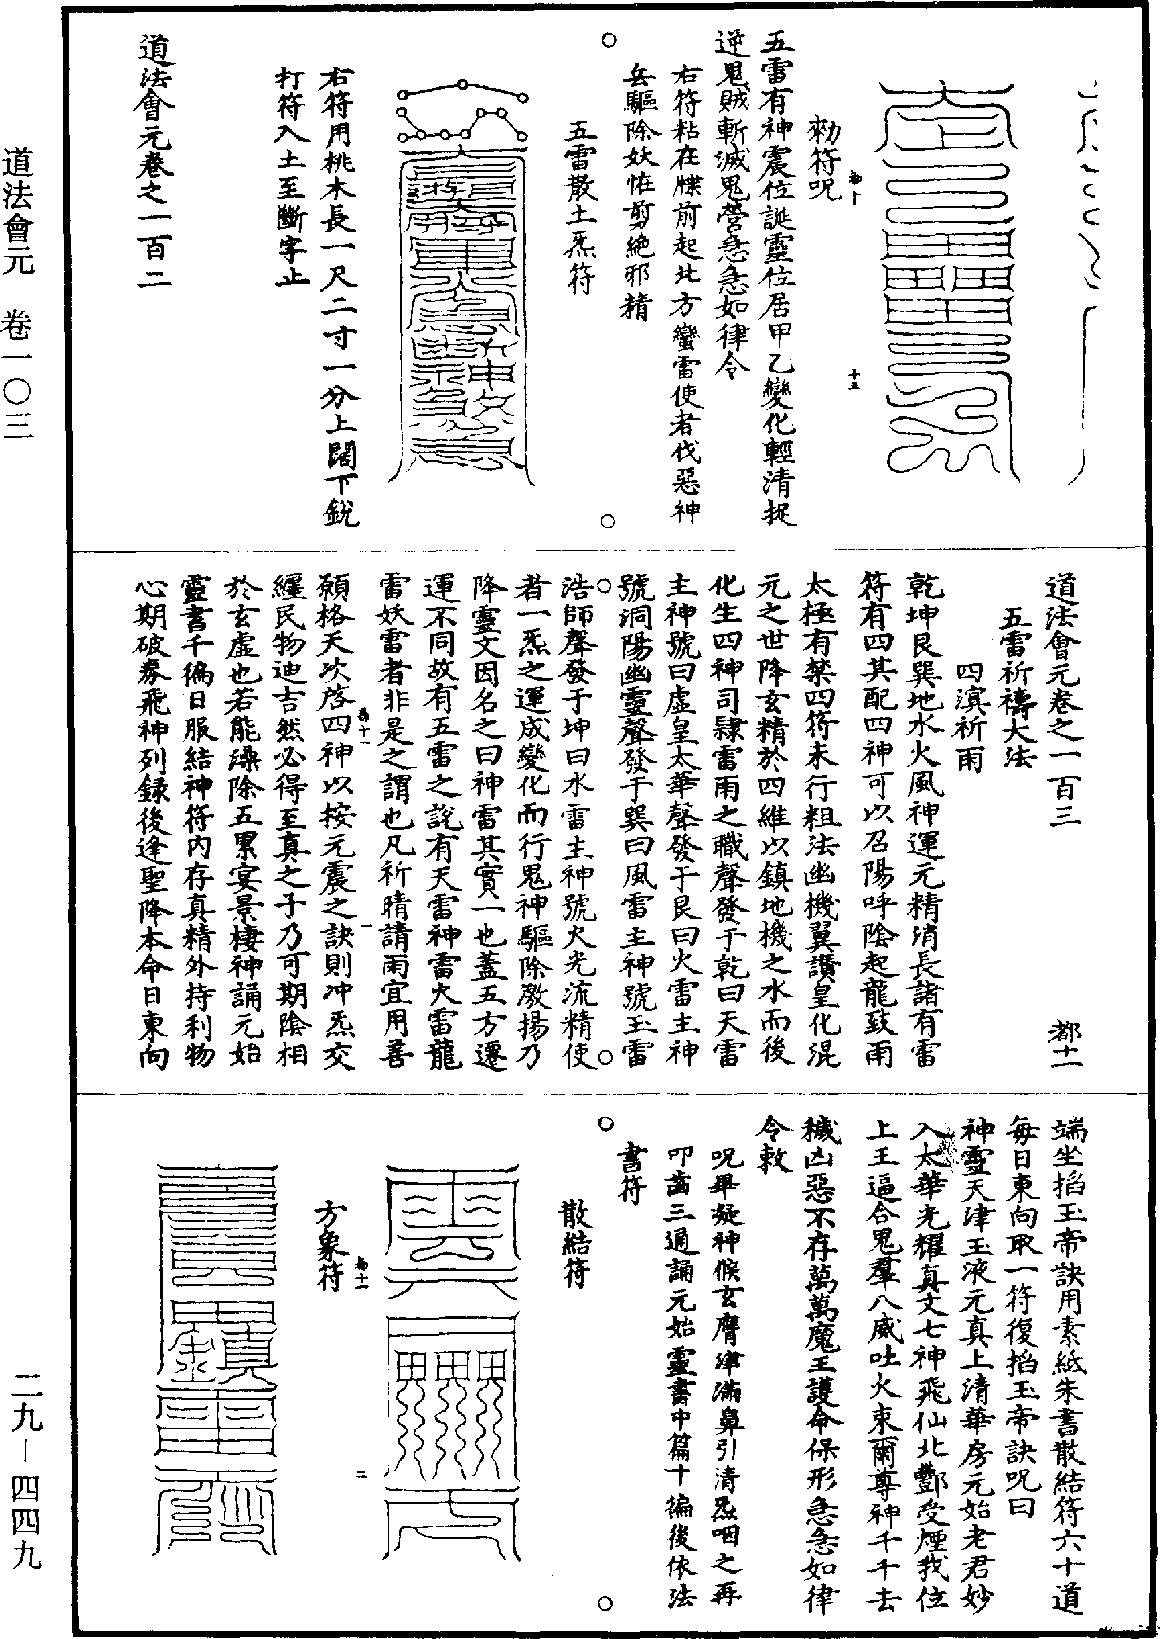 勑符呪
五雷有神震位誕靈位居甲乙變化輕清捉
逆鬼賊斬滅鬼營急急如律令
右符粘在牒前起北方蠻雷使者伐惡神
兵驅除妖怪剪絶邪精
五雷散土炁符
右符用桃木長一尺二寸一分上闊下銳
打符入土至斷字止
道法會元卷之一百二
道法會元卷之一百三
都十一
五雷祈禱大法
四溟祈雨
乾坤艮巽地水火風神運元精消長諸有雷
符有四其配四神可以召陽呼陰起龍致雨
太極有禁四符未行粗法幽機翼讚皇化混
元之世降玄精於四維以鎮地機之水而後
化生四神司隸雷雨之職聲發于乾曰天雷
主神號曰虛皇太華聲發于艮曰火雷主神
號洞陽幽靈聲發于巽曰風雷主神號玉雷
浩師聲發于坤曰水雷主神號火光流精使
者一炁之運成變化而行鬼神驅除激揚乃
降靈文因名之曰神雷其實一也蓋五方遷
運不同故有五雷之說有天雷神雷火雷龍
雷妖雷者非是之謂也凡祈晴請雨宜用善
願格天次啓四神以按元震之訣則冲炁交
纏民物迪吉然必得至真之子乃可期陰相
於玄虛也若能澡除五累宴景棲神誦元始
靈書千徧日服結神符内存真精外持利物
心期破券飛神列録後逢聖降本命日東向
端坐掐玉帝訣用素紙朱書散結符六十道
每日東向取一符復掐玉帝訣呪曰
神靈天津玉液元真上清華房元始老君妙
入太華光耀真文七神飛仙北酆受煙我位
上王逼合鬼羣八威吐火束爾尊神千千去
穢凶惡不存萬萬魔王護命保形急急如律
令敕
呪畢凝神候玄膺津滿鼻引清炁咽之再
叩齒三通誦元始靈書中篇十徧後依法
書符
散結符
方象符
道法會元　卷一〇三
二九－四四九